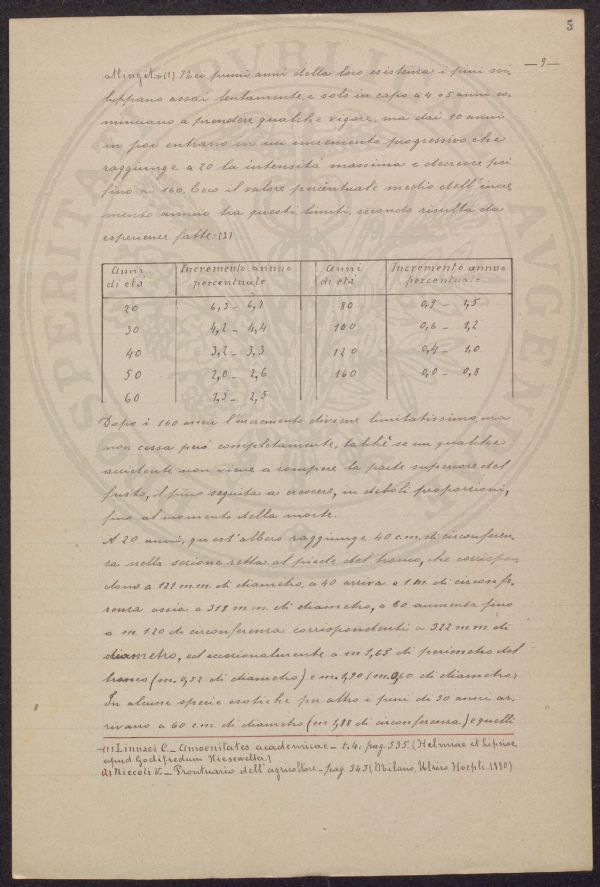 5
— 9 —
attingit (1). Nei primi anni della loro esistenza i pini svi,
luppano assai lentamente, e solo in capo a 4 o 5 anni co,
minciano a prendere qualche vigore, ma dai 10 anni
in poi entrano in un incremento progressivo che
raggiunge a 20 la intensità massima e decresce poi
fino a 160. Ecco il valore percentuale medio dell'incre
mento annuo tra questi limiti, secondo risulta da
esperienze fatte: (2)
Anni di età | Incremento annuo percentuale | Anni di età | Incremento annuo percentuale
20 | 6,3 – 6,8 | 80 | 0,9 – 1,5
30 | 4,2 – 4,4 | 100 | 0,6 – 1,2
40 | 3,2 – 3,3 | 120 | 0,4 – 1,0
50 | 2,0 – 2,6 | 160 | 0,0 – 0,8
60 | 1,5 – 2,5
Dopo i 160 anni l'incremento diviene limitatissimo, ma
non cessa però completamente, talchè se un qualche
accidente non viene a rompere la parte superiore del
fusto, il pino seguita a crescere, in deboli proporzioni,
fino al momento della morte.
A 20 anni, quest'albero raggiunge 40 c.m. di circonferen,
za nella sezione retta al piede del tronco, che corrispon
dono a 121 m.m. di diametro, a 40 arriva a 1 m. di circonfe,
renza ossia a 318 m.m. di diametro, a 60 aumenta fino
a m. 1.20 di circonferenza corrispondenti a 322 m.m. di
diametro, ed eccezionalmente a m 1,65 di perimetro del
tronco (m. 0,52 di diametro) e m. 1,90 (m. 0,60 di diametro,
In alcune specie esotiche per altro i pini di 30 anni ar,
rivano a 60 c.m. di diametro (m 1,88 di circonferenza) e quelli
(1) Linnaei C. – Amoenitates academicae – t. 4. pag. 535. (Helmiae et Lipsiae
apud Godifredum Kiesewetter)
(2) Niccoli V. – Prontuario dell'agricoltore – pag. 343 (Milano, Ulrico Hoepli 1890)
PVBLI
AVGENT